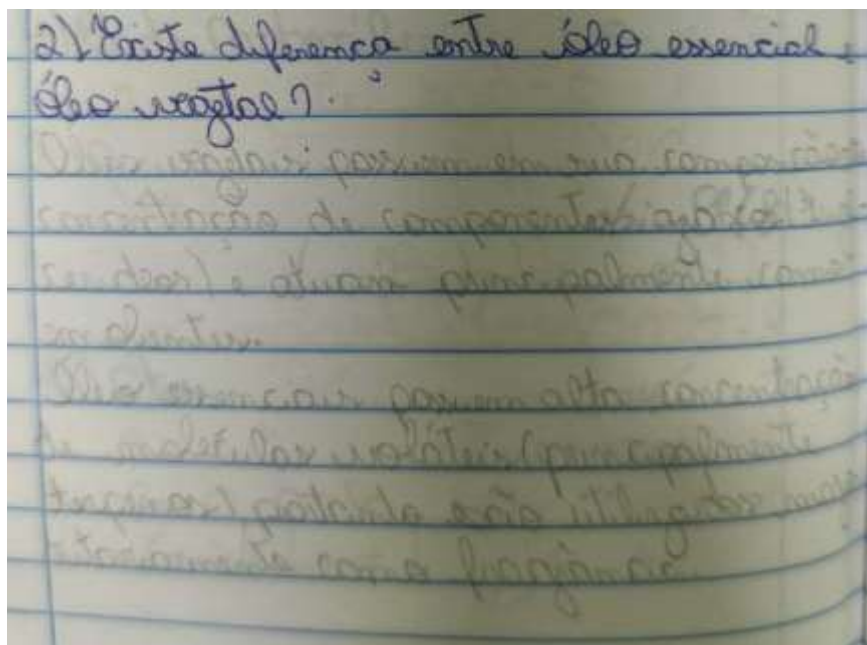 2) Existe diferença entre óleo essencial e
óleo vegetal?
Óleos vegetais possuem em sua composição
concentração de componentes graxos
e atuam principalmente como
emolientes.
Óleos essenciais possuem alta concentração
de moléculas voláteis (principalmente
terpenos), portanto são utilizados major
itariamente como fragância.